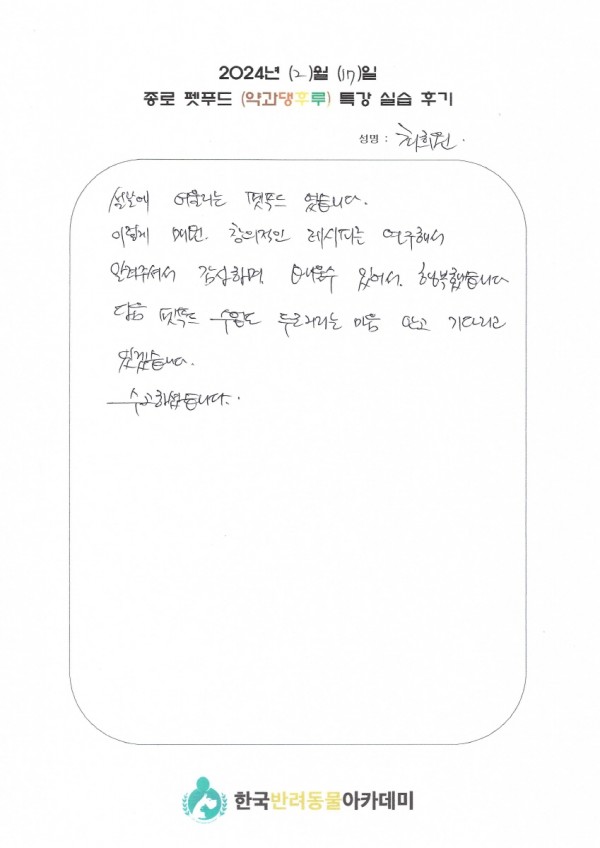 2024년 (2)월 (17)일
종로 펫푸드 (약과댕후루) 특강 실습 후기
성명 : 최희원.
설날에 어울리는 펫푸드 였습니다.
이렇게 매번. 창의적인 레시피를 연구해서
알려주셔서 감사하며, 배울수 있어서, 행복했습니다
다음 펫푸드 수업도 두근거리는 마음 안고 기다리고
있겠습니다.
수고하셨습니다..
한국반려동물아카데미